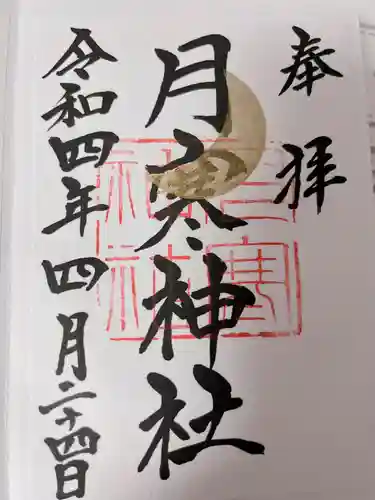 奉拝
月寒神社
令和四年四月二十四日
月寒神社